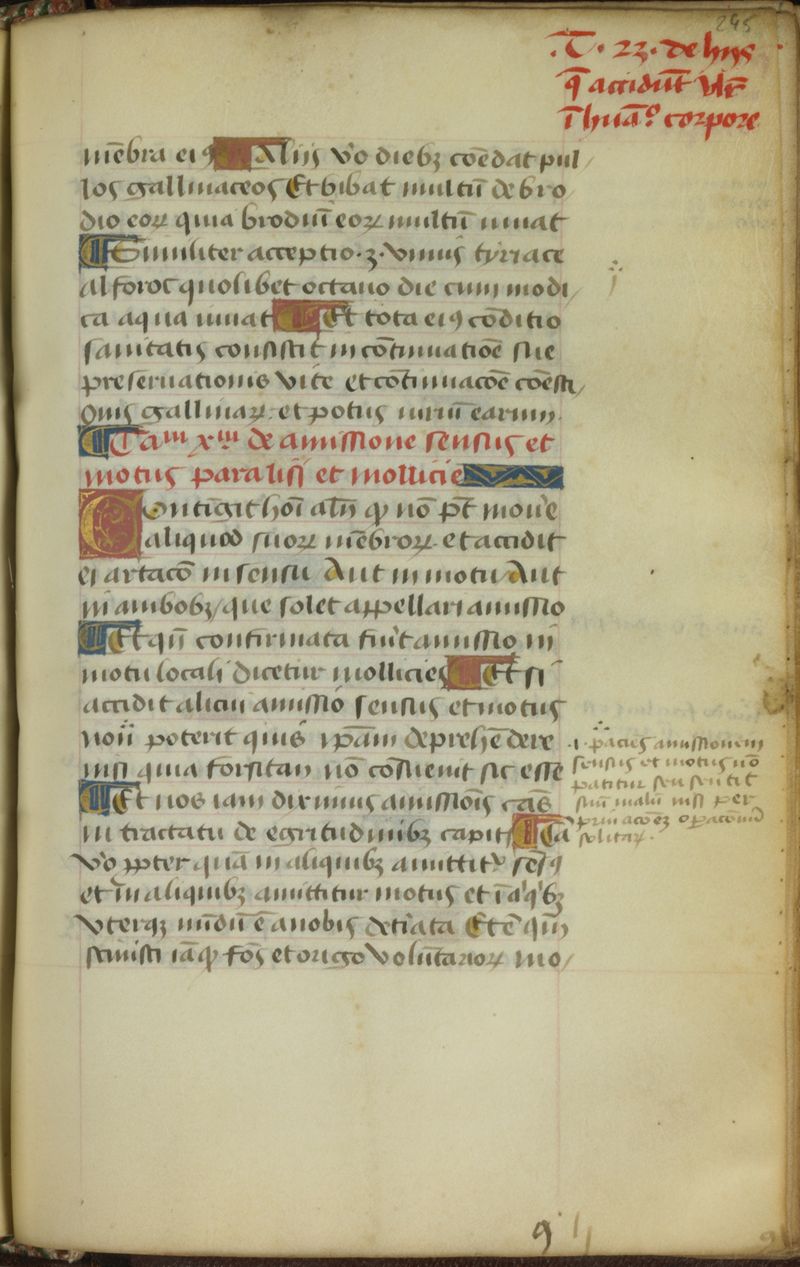 245
.T. 23. de hijs
q̄ accidūt vlr̄
ī huāº corpore
mēbra eiꝯ Alijs v̊o diebꝫ cōedat pul/
los gallinaceos Et bibat multū de bro
dio eoꝝ quia brodiū eoꝝ multū iuuat
Similiter acceptio ·ʒ· vnius tyriace
al foroc quolibet octauo die cum modi/
ca aqua iuuat Et tota eiꝯ cōditio
sanitatis consistit in cōtinuatiōe sue
preseruationis vite et cōtinuacōe cōesti/
onis gallinaꝝ et potus iuriū earum.
Caᵐ xᵐ de amissione sensus et
motus paralisi et mollicie
Contīgit hoī alīj qꝫ nō pt̄ mouē
aliquod suoꝝ mēbroꝝ et accidit
ei artacō in sensu Aut in motu Aut
in ambobꝫ/ que solet appellari amissio
Et qn̄ confirmata fūt amissio in
motu locali dicetur mollicies Et si
accidit alicui amissio sensus et motus
non poterit quis ipām deprehēdere
nisi quia forsitan nō cōsueuit sic esse
Et nos iam diximus amissiōis cās
in tractatu de egritudinibꝫ capitꝭ Cā
v̊o ꝓpter quā in aliquibꝫ amittitr̄ sēsꝯ
et in aliquibꝫ amittitur motus et ī aqꝫ
vterqꝫ nōdū ē a nobis dēcīata Et ē qm̄
sciuisti iā qꝫ fōs et origo volūtarioꝝ mo/
.i. paciēs amissionem
sensus et motus nō
patitur seu sentit
suū malū nisi per
priuacōeꝫ opacōnū
solitaꝝ.
9